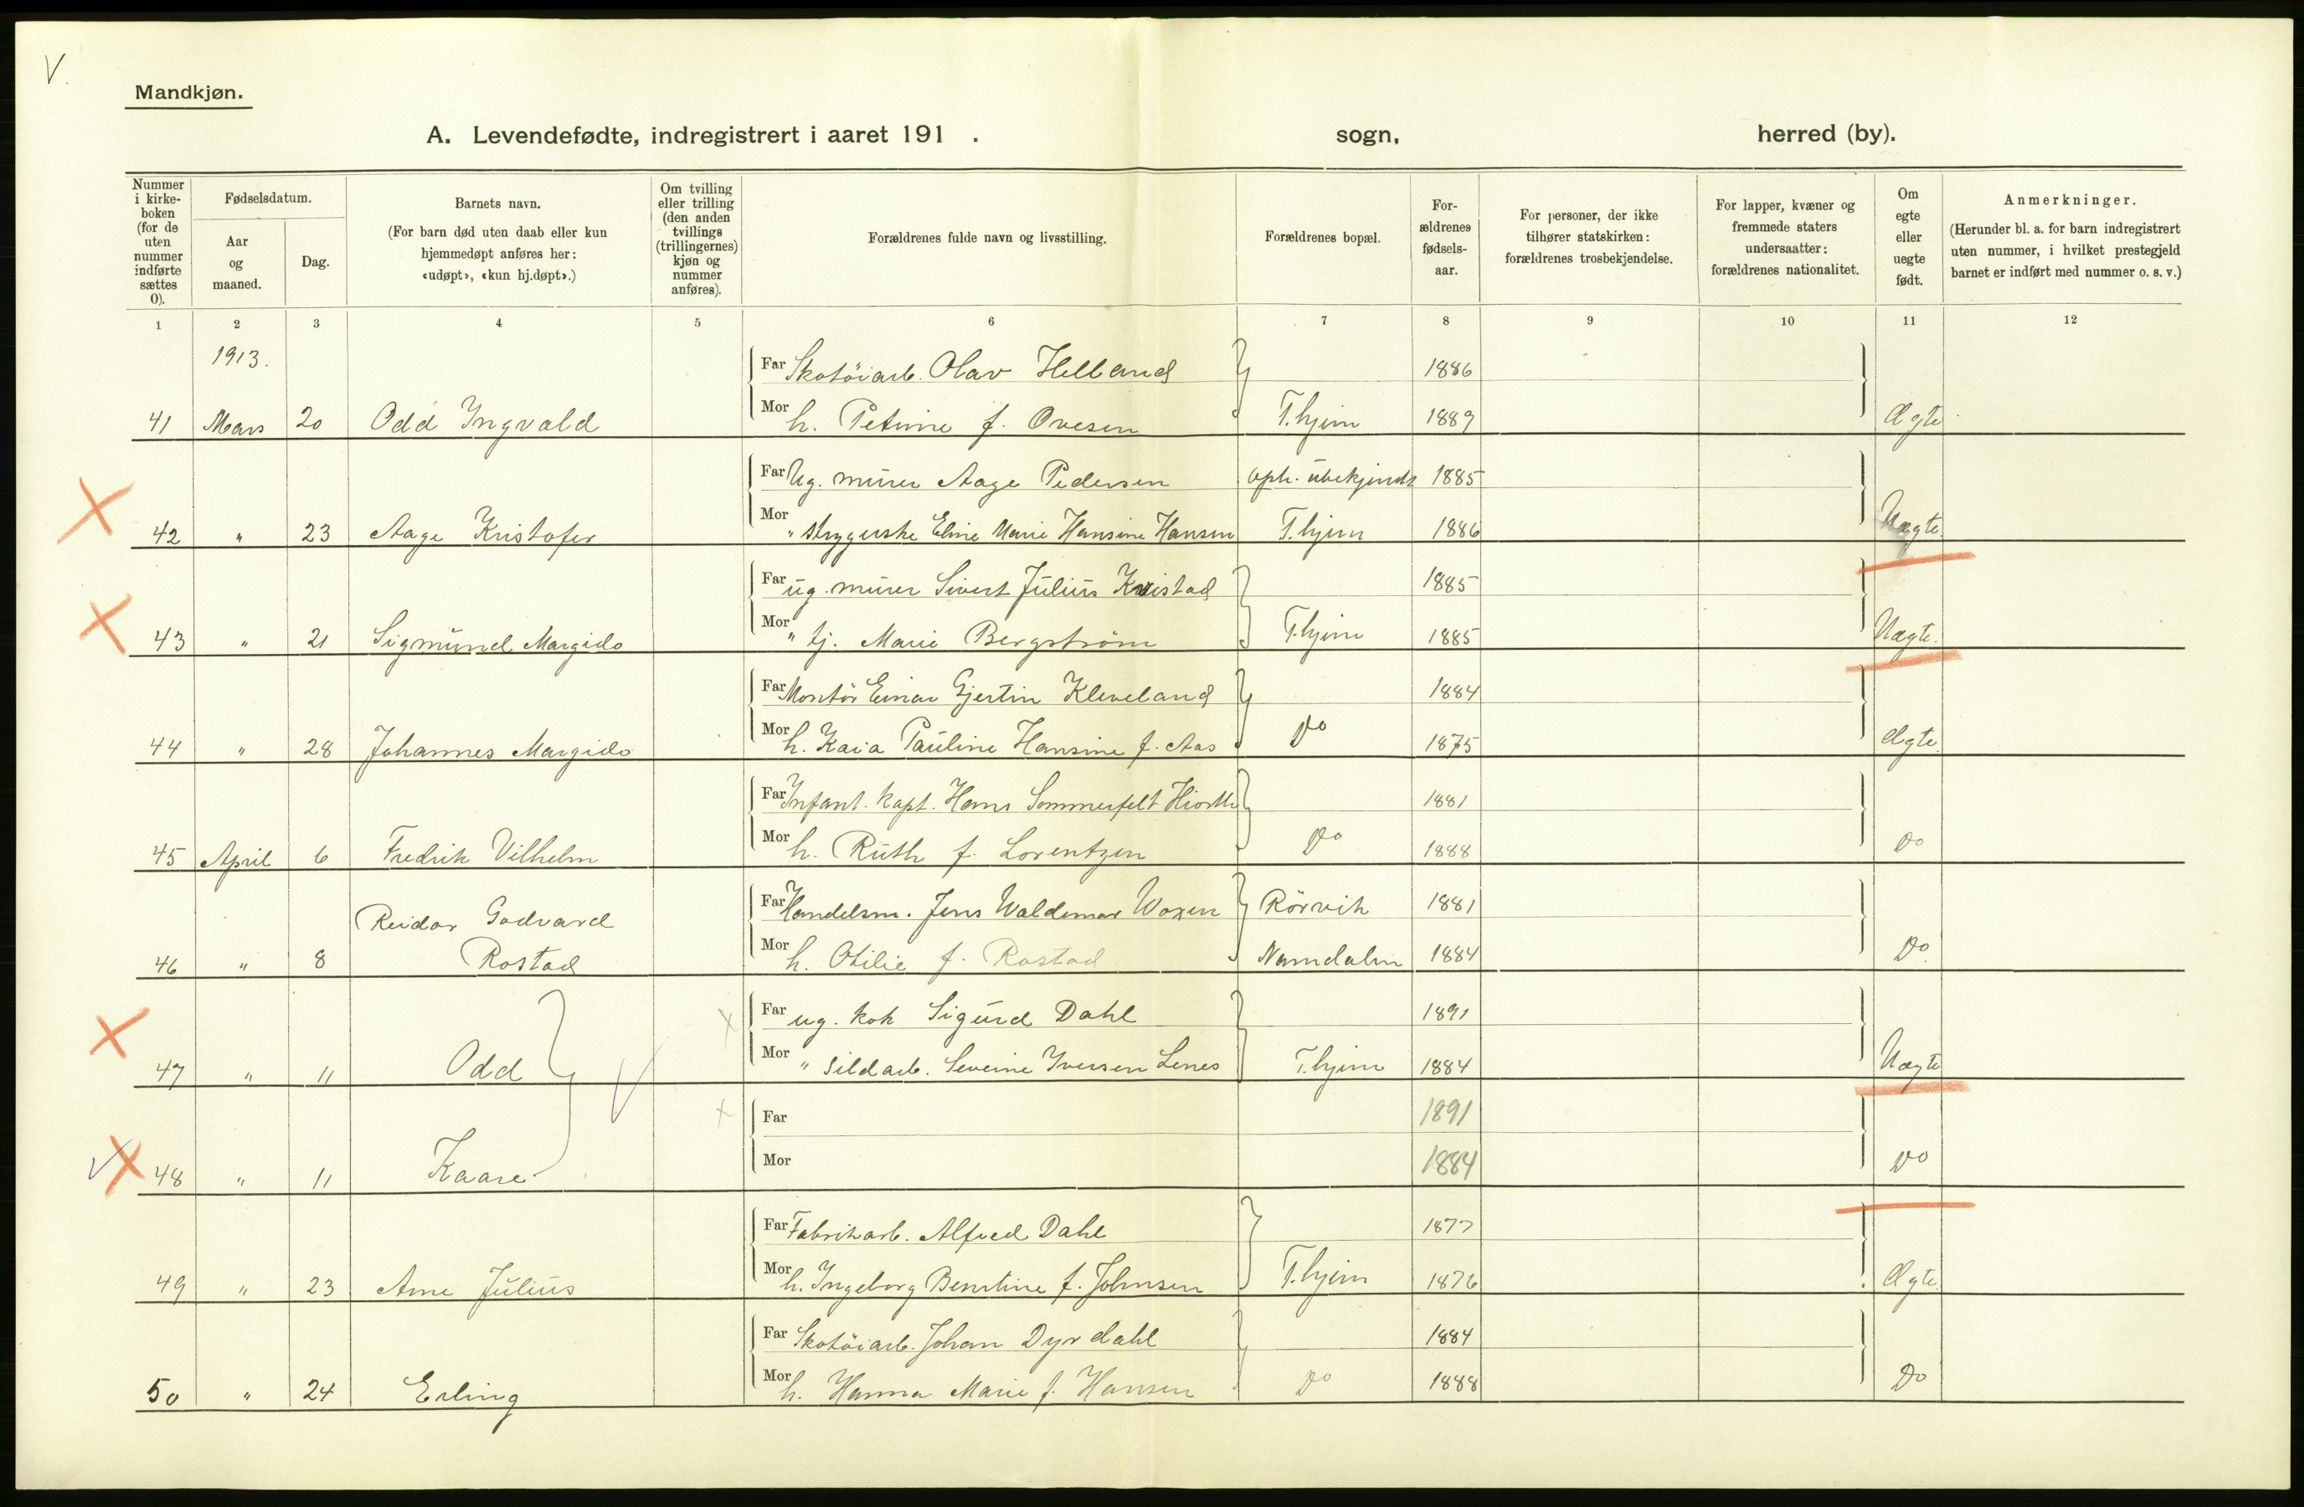 V.
Mandkjøn.
A. Levendefødte, indregistrert i aaret 191 . sogn, herred (by).
Nummer i kirke-boken (for de uten nummer indførte sættes 0).
Fødselsdatum.
Aar og maaned.
Dag.
Barnets navn.
(For barn død uten daab eller kun hjemmedøpt anføres her: «udøpt», «kun hj.døpt».)
Om tvilling eller trilling (den anden tvillings (trillingernes) kjøn og nummer anføres).
Forældrenes fulde navn og livsstilling.
Forældrenes bopæl.
For-ældrenes fødsels-aar.
For personer, der ikke tilhører statskirken: forældrenes trosbekjendelse.
For lapper, kvæner og fremmede staters undersaatter: forældrenes nationalitet.
Om egte eller uegte født.
Anmerkninger.
(Herunder bl. a. for barn indregistrert uten nummer, i hvilket prestegjeld barnet er indført med nummer o. s. v.)
1 2 3 4 5 6 7 8 9 10 11 12
1913.
Far Skotöiarb. Olav Helland 1886
41 Mars 20 Odd Ingvald Mor h. Petrine f. Ovesen T.hjem 1889 Ægte
Far Ug. murer Aage Pedersen oph. ubekjendt 1885
42 " 23 Aage Kristofer Mor " strygerske Eline Marie Hansine Hansen T.hjem 1886 Uægte.
Far ug. murer Sivert Julius Kvistad 1885
43 " 21 Sigmund Margido Mor " tj. Marie Bergström T.hjem 1885 Uægte.
Far Montör Einar Gjertin Kleveland 1884
44 " 28 Johannes Margido Mor h. Kaia Pauline Hansine f. Aas Do 1875 Ægte.
Far Infant. kapt. Hans Sommerfelt Hiorth 1881
45 April 6 Fredrik Vilhelm Mor h. Ruth f. Lorentzen Do 1888 Do
Reidar Godvard Far Handelsm. Jens Waldemar Woxen Rörvik 1881
46 " 8 Rostad Mor h. Otilie f. Rostad Namdalen 1884 Do
Far ug. kok Sigurd Dahl 1891
47 " 11 Odd Mor " sildarb. Severine Iversen Lenes T.hjem 1884 Uægte
Far 1891
48 " 11 Kaare Mor 1884 Do
Far Fabrikarb. Alfred Dahl 1877
49 " 23 Arne Julius Mor h. Ingeborg Berntine f. Johnsen T.hjem 1876 Ægte.
Far Skotöiarb. Johan Dyrdahl 1884
50 " 24 Erling Mor h. Hanna Marie f. Hansen Do 1888 Do